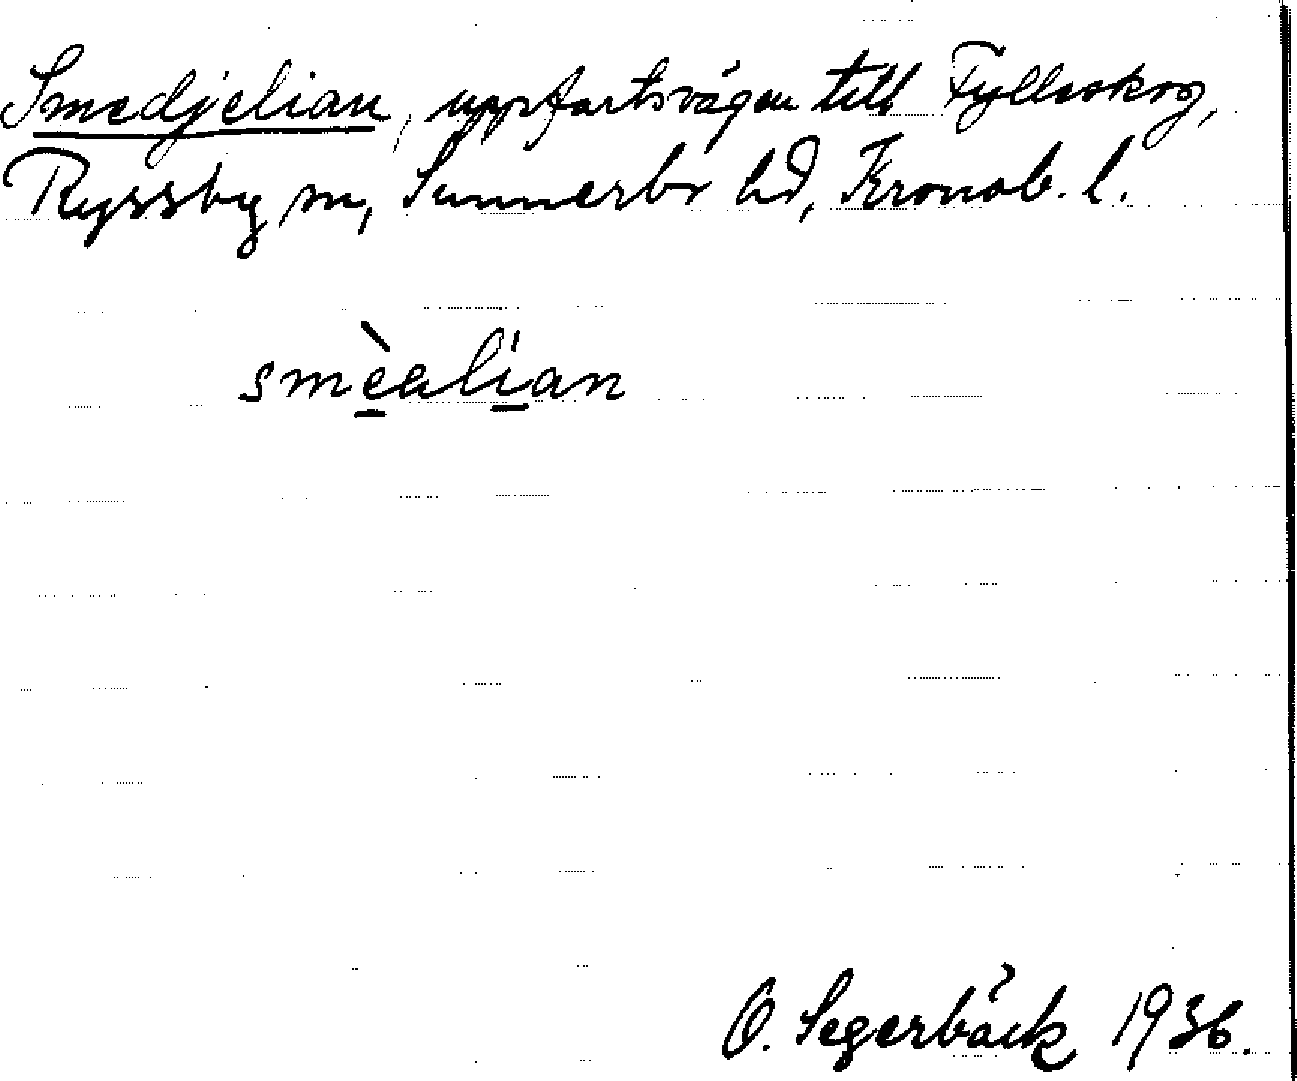 Smedjelian, uppfartsvägen till Fylleskog,
Ryssby sn, Sunnerbo hd, Kronob. l.
smèalian
O. Segerbäck 1936.